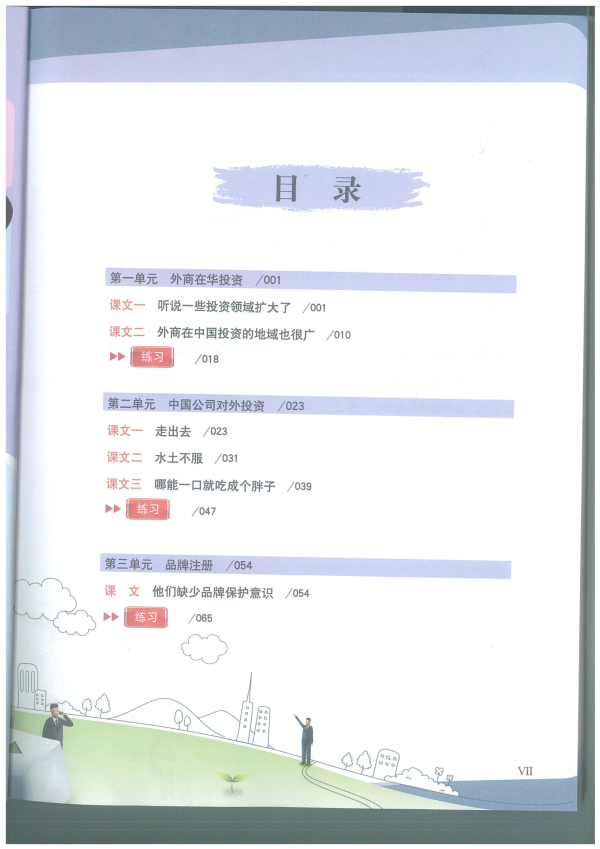 目 录
第一单元 外商在华投资 /001
课文一 听说一些投资领域扩大了 /001
课文二 外商在中国投资的地域也很广 /010
练习 /018
第二单元 中国公司对外投资 /023
课文一 走出去 /023
课文二 水土不服 /031
课文三 哪能一口就吃成个胖子 /039
练习 /047
第三单元 品牌注册 /054
课 文 他们缺少品牌保护意识 /054
练习 /065
VII